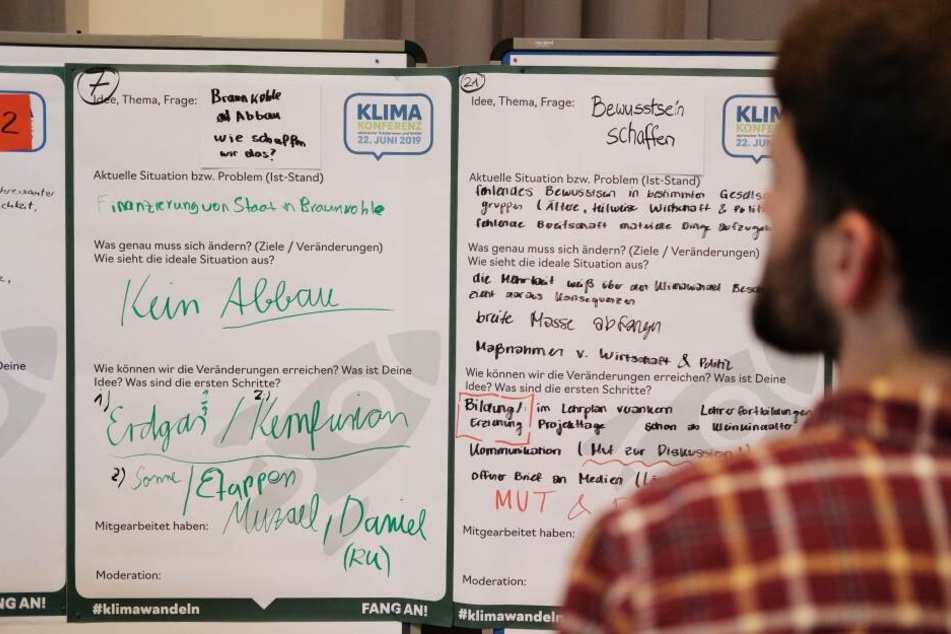 2
NG AN!
7
Idee, Thema, Frage:
Braunkohle
Abbau
wie schaffen
wir das?
KLIMA
KONFERENZ
22. JUNI 2019
Aktuelle Situation bzw. Problem (Ist-Stand)
Finanzierung von Staat in Braunkohle
Was genau muss sich ändern? (Ziele / Veränderungen)
Wie sieht die ideale Situation aus?
Kein Abbau
Wie können wir die Veränderungen erreichen? Was ist Deine
Idee? Was sind die ersten Schritte?
1) Erdgas / 2) Kernfusion
2) Sonne / Etappen
Mitgearbeitet haben:
Daniel
(RU)
Moderation:
#klimawandeln
FANG AN!
21
Idee, Thema, Frage:
Bewusstsein
schaffen
KLIM
KONFE
22. JUN
Aktuelle Situation bzw. Problem (Ist-Stand)
fehlendes Bewusstsein in bestimmten Gesells
gruppen (Ältere, teilweise Wirtschaft & Politi
fehlende Bereitschaft materielle Dinge aufzugeb
Was genau muss sich ändern? (Ziele / Veränderungen)
Wie sieht die ideale Situation aus?
die Mehrheit weiß über den Klimawandel Besc
zieht daraus Konsequenzen
breite Masse abfangen
Maßnahmen v. Wirtschaft & Politik
Wie können wir die Veränderungen erreichen? Was ist Deine
Idee? Was sind die ersten Schritte?
Bildung/: im Lehrplan verankern Lehrerfortbildungen
Erziehung Projekttage schon ab Kleinkindalter
Kommunikation (Mut zur Diskussion!)
offener Brief an Medien
MUT &
Mitgearbeitet haben:
Moderation:
#klimawandeln